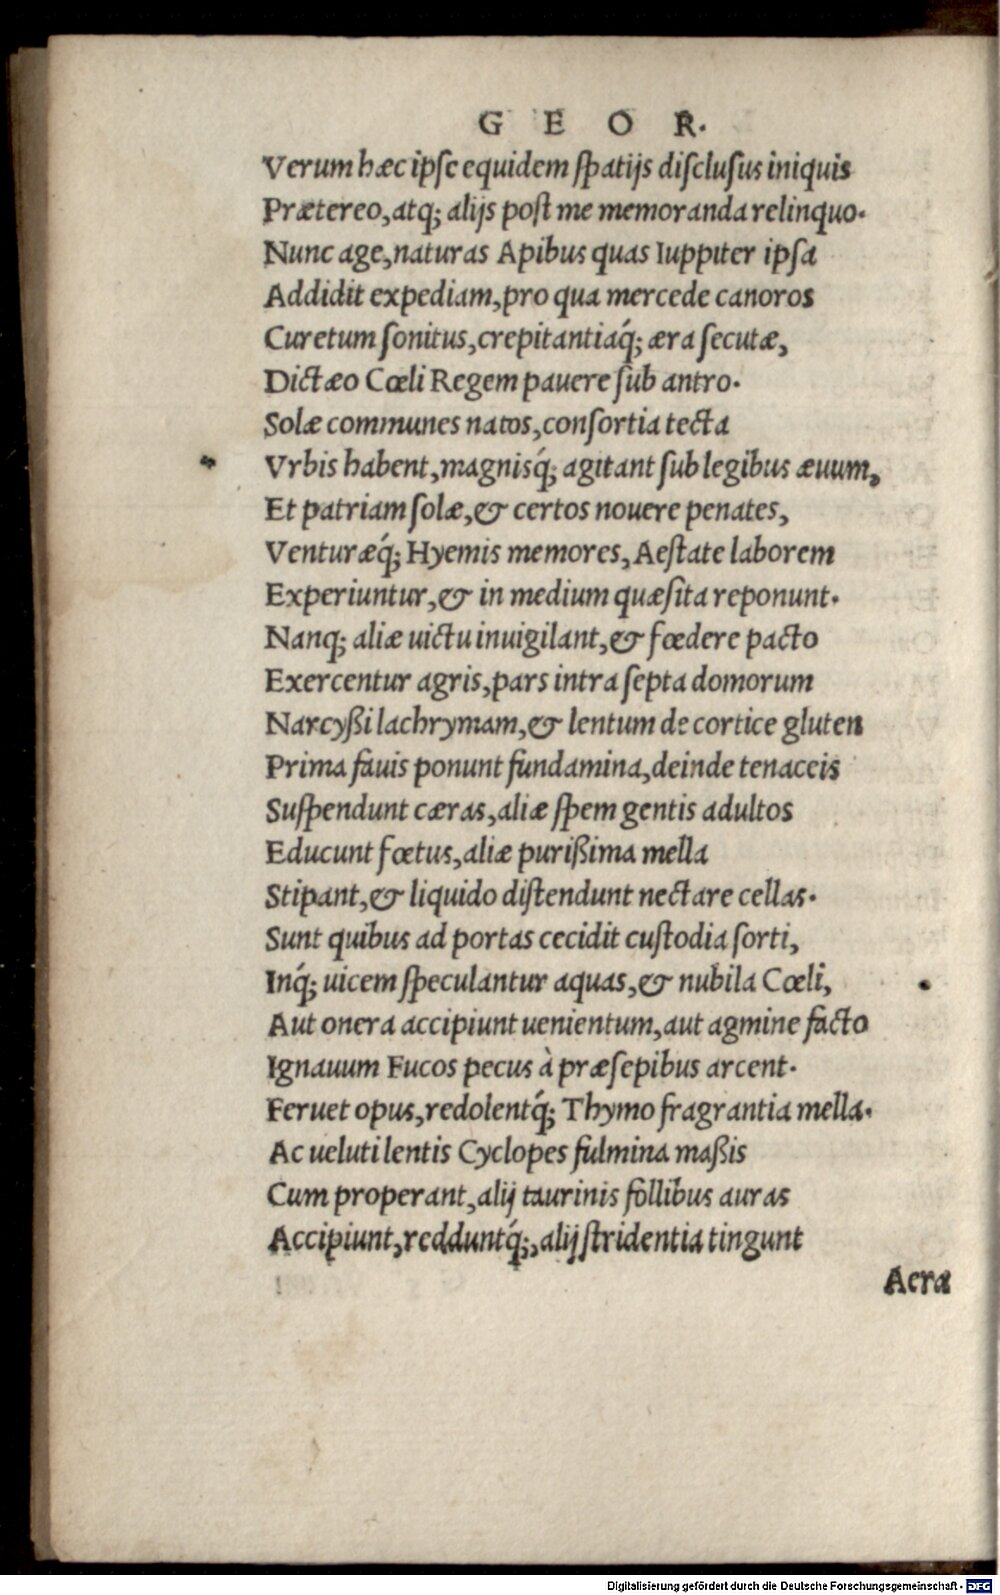 G E O R.
Verum hæc ipse equidem spatijs disclusus iniquis
Prætereo, atq; alijs post me memoranda relinquo.
Nunc age, naturas Apibus quas Iuppiter ipsa
Addidit expediam, pro qua mercede canoros
Curetum sonitus, crepitantiaq́; æra secutæ,
Dictæo Cœli Regem pauere sub antro.
Solæ communes natos, consortia tecta
Vrbis habent, magnisq́; agitant sub legibus æuum,
Et patriam solæ, & certos nouere penates,
Venturæq́; Hyemis memores, Aestate laborem
Experiuntur, & in medium quæsita reponunt.
Nanq; aliæ uictu inuigilant, & fœdere pacto
Exercentur agris, pars intra septa domorum
Narcyßi lachrymam, & lentum de cortice gluten
Prima fauis ponunt fundamina, deinde tenaceis
Suspendunt cæras, aliæ spem gentis adultos
Educunt fœtus, aliæ purißima mella
Stipant, & liquido distendunt nectare cellas.
Sunt quibus ad portas cecidit custodia sorti,
Inq́; uicem speculantur aquas, & nubila Cœli,
Aut onera accipiunt uenientum, aut agmine facto
Ignauum Fucos pecus à præsepibus arcent.
Feruet opus, redolentq́; Thymo fragrantia mella.
Ac ueluti lentis Cyclopes fulmina maßis
Cum properant, alij taurinis follibus auras
Accipiunt, redduntq́;, alij stridentia tingunt
Aera
Digitalisierung gefördert durch die Deutsche Forschungsgemeinschaft - DFG